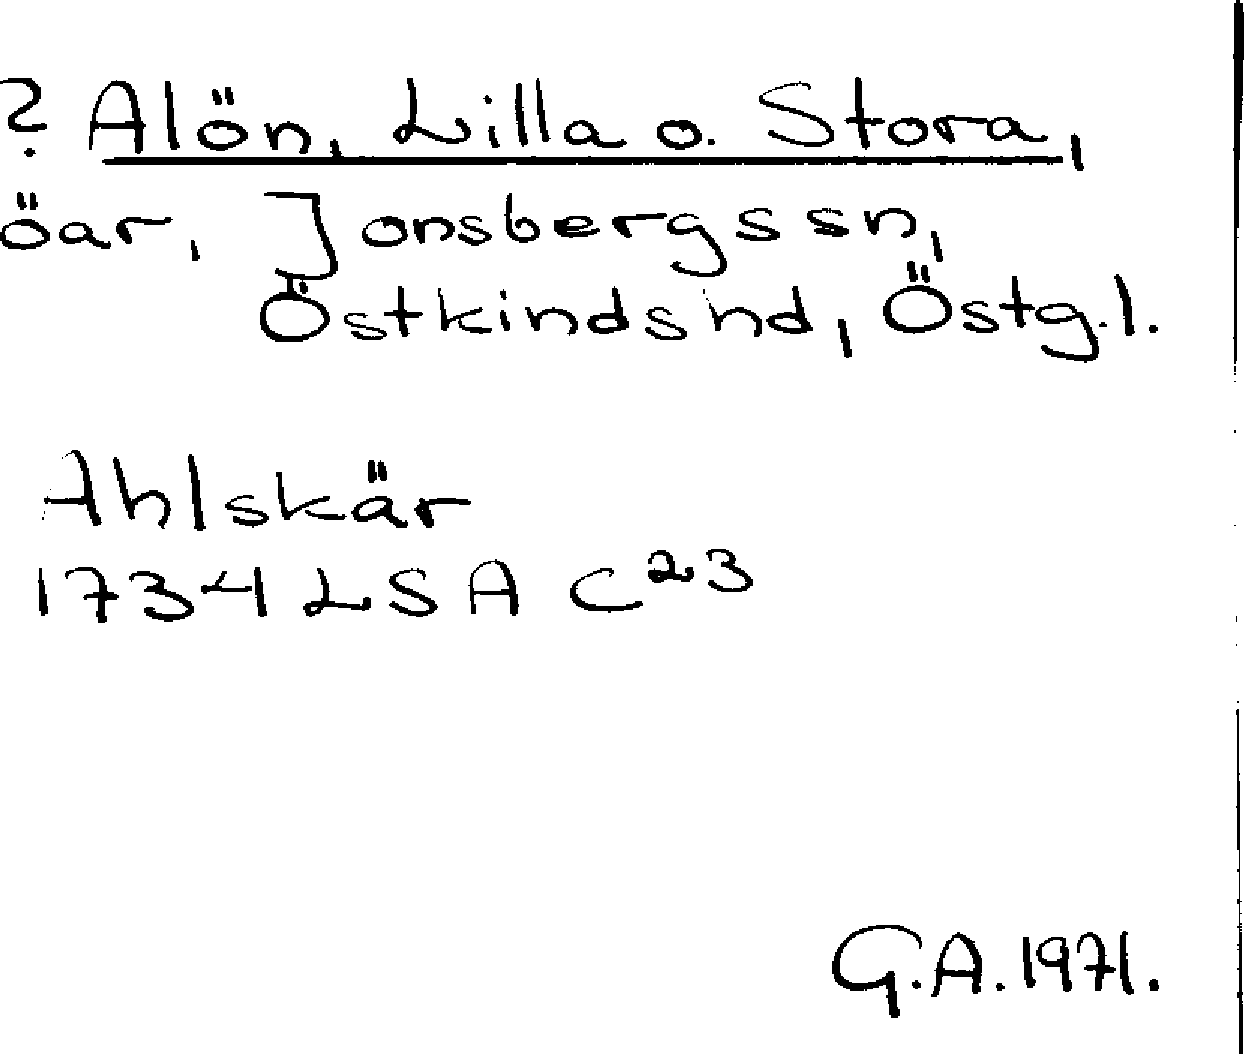 ? Alön, Lilla o. Stora,
öar, Jonsbergs sn,
Östkinds hd, Östg.l.
Ahlskär
1734 LSA C²³
G.A. 1971.